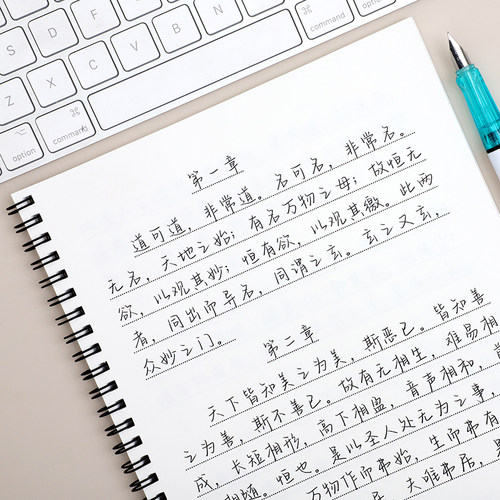 S
D
F
G
H
J
K
Z
X
C
V
B
N
M
⌘
command
⌥
option
⌥
option
⌘
command
第一章
道可道，非常道。名可名，非常名。
无名，天地之始；有名万物之母；故恒无
欲，以观其妙；恒有欲，以观其徼。此两
者，同出而异名，同谓之玄。玄之又玄，
众妙之门。
第二章
天下皆知美之为美，斯恶已。皆知善
之为善，斯不善已。故有无相生，难易相
成，长短相形，高下相盈，音声相和，
相随。恒也。是以圣人处无为之事，
万物作而弗始，生而弗有
夫唯弗居，是